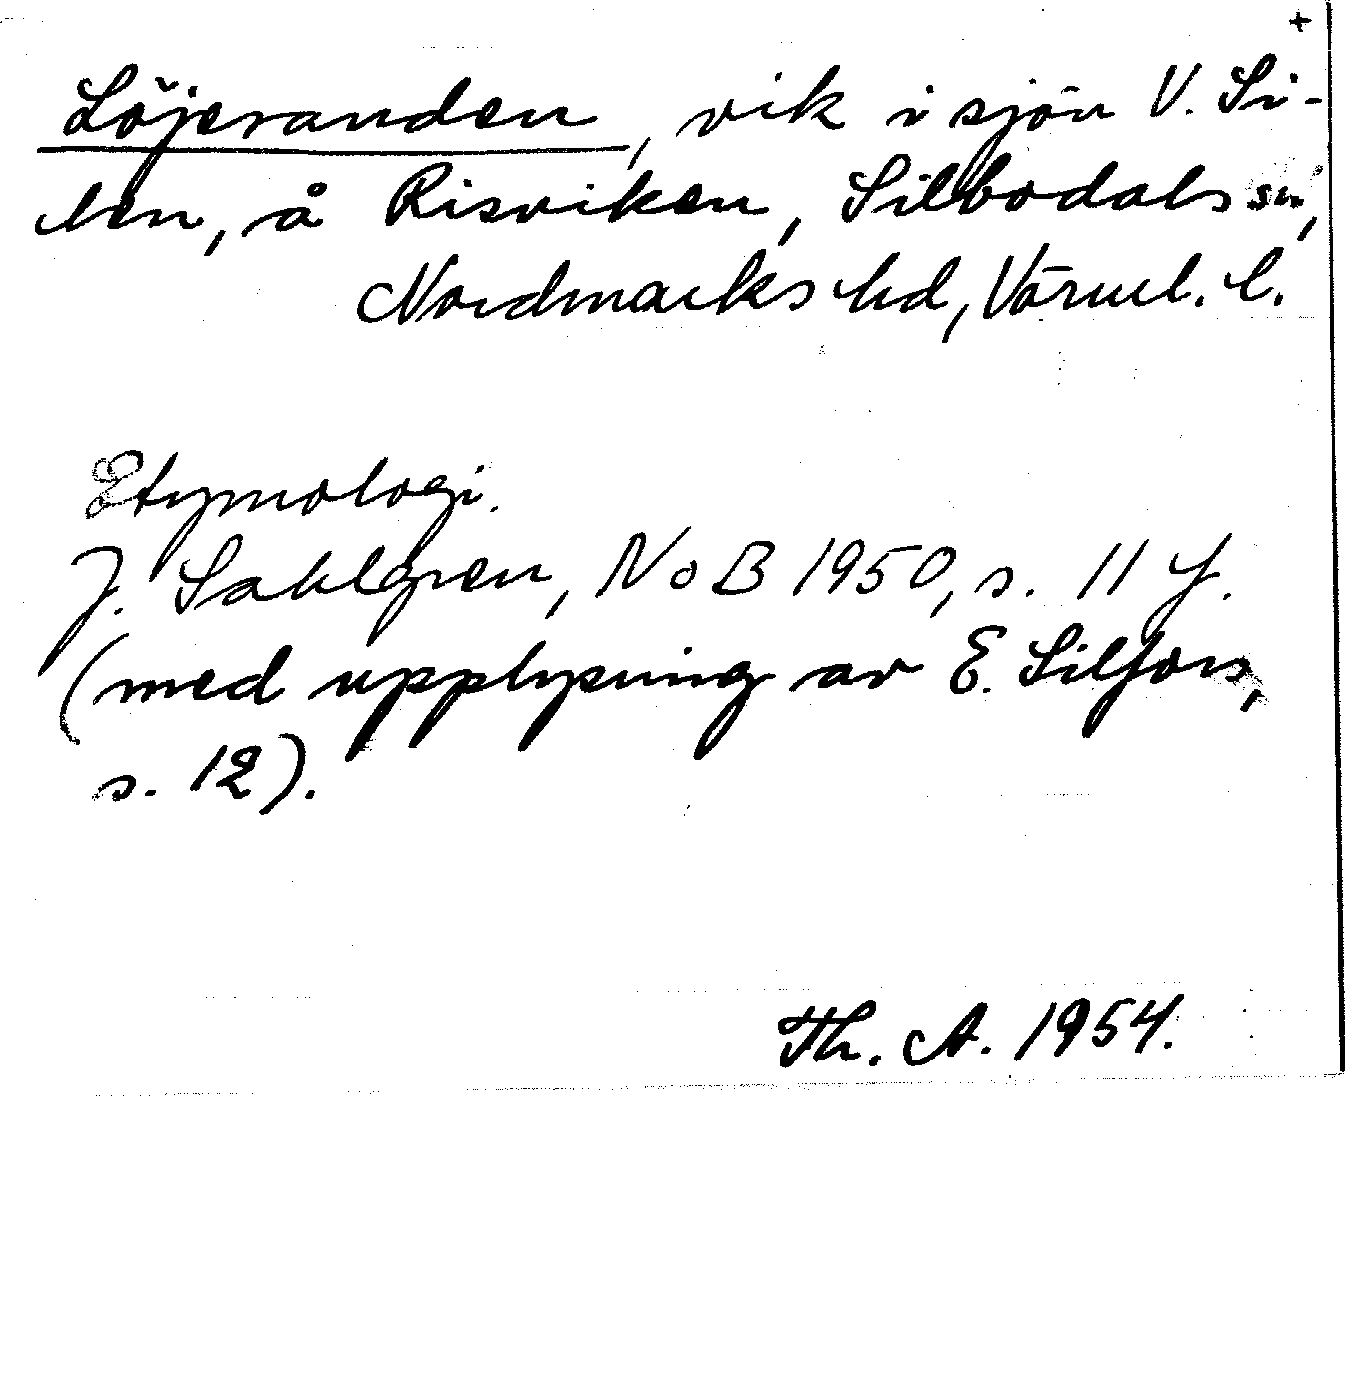 +
Löjeranden, vik i sjön V. Si-
len, å Risviken, Silbodals sn,
Nordmarks hd, Värml. l.
Etymologi.
J. Sahlgren, NoB 1950, s. 11 f.
(med upplysning av E. Silfors,
s. 12).
Th. A. 1954.